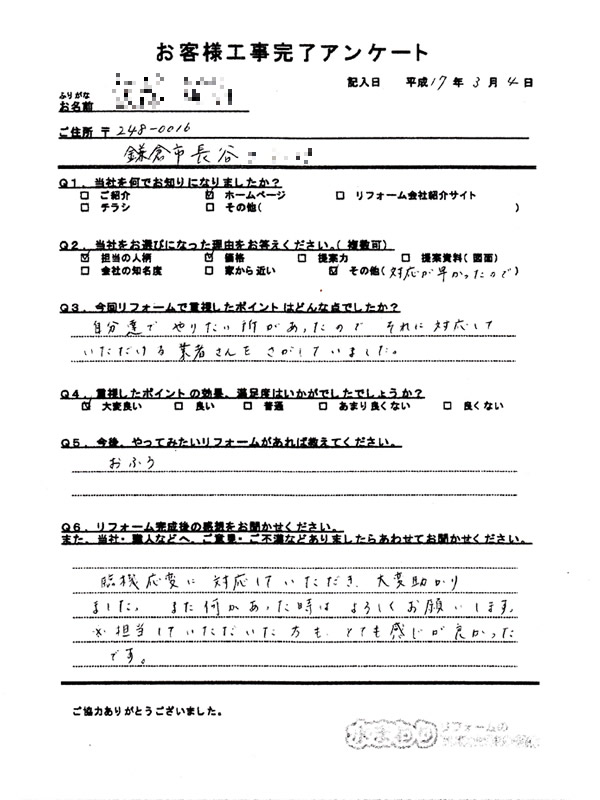 お客様工事完了アンケート
記入日 平成17年3月4日
ふりがな
お名前
ご住所 〒248-0016
鎌倉市長谷
Q1．当社を何でお知りになりましたか？
□ ご紹介 ☑ ホームページ □ リフォーム会社紹介サイト
□ チラシ □ その他( )
Q2．当社をお選びになった理由をお答えください。( 複数可)
☑ 担当の人柄 ☑ 価格 □ 提案力 □ 提案資料(図面)
□ 会社の知名度 □ 家から近い ☑ その他(対応が早かったので)
Q3．今回リフォームで重視したポイントはどんな点でしたか？
自分達でやりたい所があったので それに対応して
いただける業者さんをさがしていました。
Q4．重視したポイントの効果、満足度はいかがでしたでしょうか？
☑ 大変良い □ 良い □ 普通 □ あまり良くない □ 良くない
Q5．今後、やってみたいリフォームがあれば教えてください。
おふろ
Q6．リフォーム完成後の感想をお聞かせください。
また、当社・職人などへ、ご意見・ご不満などありましたらあわせてお聞かせください。
臨機応変に対応していただき、大変助かり
ました。 また何かあった時は よろしくお願いします。
※担当していただいた方も、とても感じが良かった
です。
ご協力ありがとうございました。
水まわり リフォームの